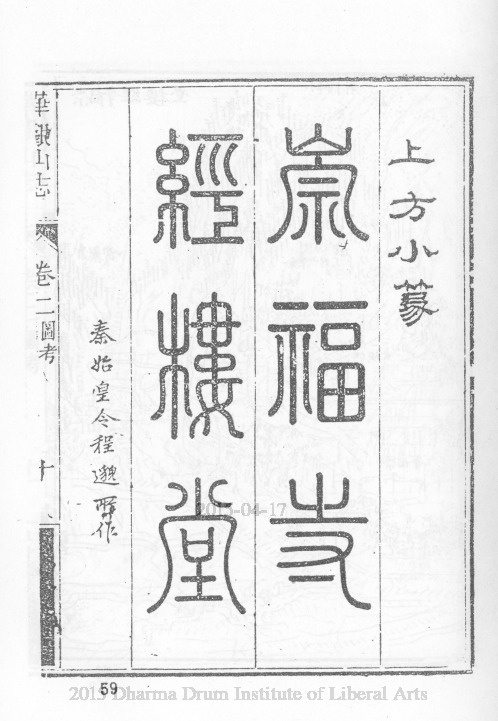 上方小篆
崇福寺
經樓堂
秦始皇令程邈所作
山志 卷二 圖考 十
2015-04-17
59
2015 Dharma Drum Institute of Liberal Arts